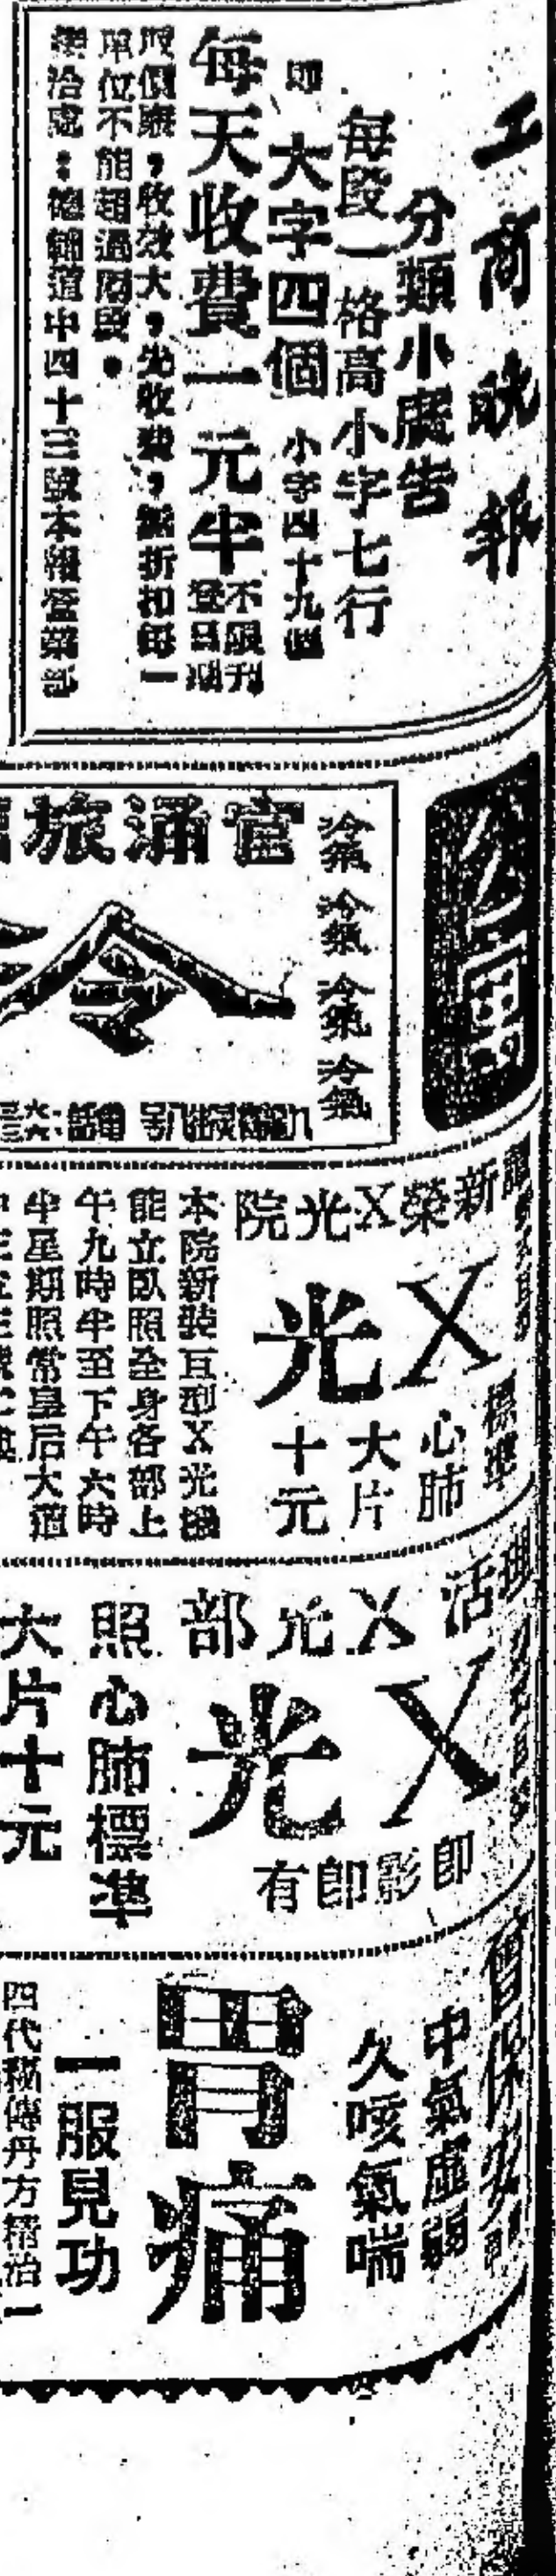 工商晚報
分類小廣告
每段一格高小字七行
即大字四個 小字四十九個
每天收費一元半 不限刊登日期
取價廉，收效大，先收費，無折扣每一
單位不能超過四段。
接洽處：德輔道中四十三號本報營業部
冷氣 冷氣 冷氣 冷氣
官涌旅
冷
新榮X光院
X光
標準
心肺
大片
十元
本院新裝巨型X光機
能立臥照全身各部上
午九時半至下午六時
半星期照常皇后大道
X光部
X光
即影即有
照心肺標準
大片十元
曾保安
中氣虛弱
久咳氣喘
胃痛
一服見功
四代秘傳丹方精治一